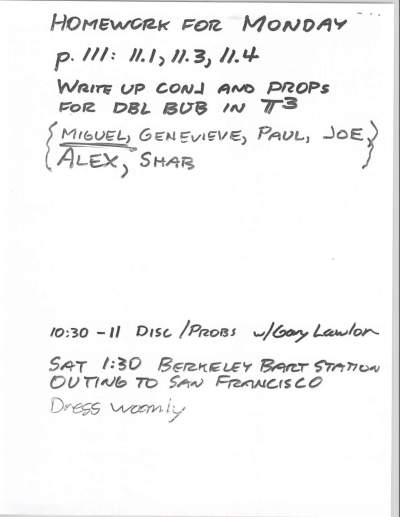 HOMEWORK FOR MONDAY
p. 111: 11.1, 11.3, 11.4
WRITE UP CONJ AND PROPS
FOR DBL BUB IN T3
{MIGUEL, GENEVIEVE, PAUL, JOE,}
{ALEX, SHAB}
10:30-11 DISC/PROBS w/Gary Lawlor
SAT 1:30 BERKELEY BART STATION
OUTING TO SAN FRANCISCO
Dress warmly